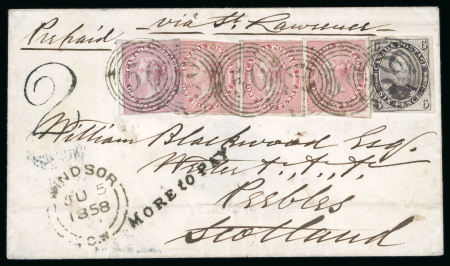 Prepaid via St. Lawrence
CANADA POSTAGE
SIX PENCE
2
William Blackwood Esq.
WINDSOR
JU 5
1858
C.W
MORE to PAY
Peebles
Scotland